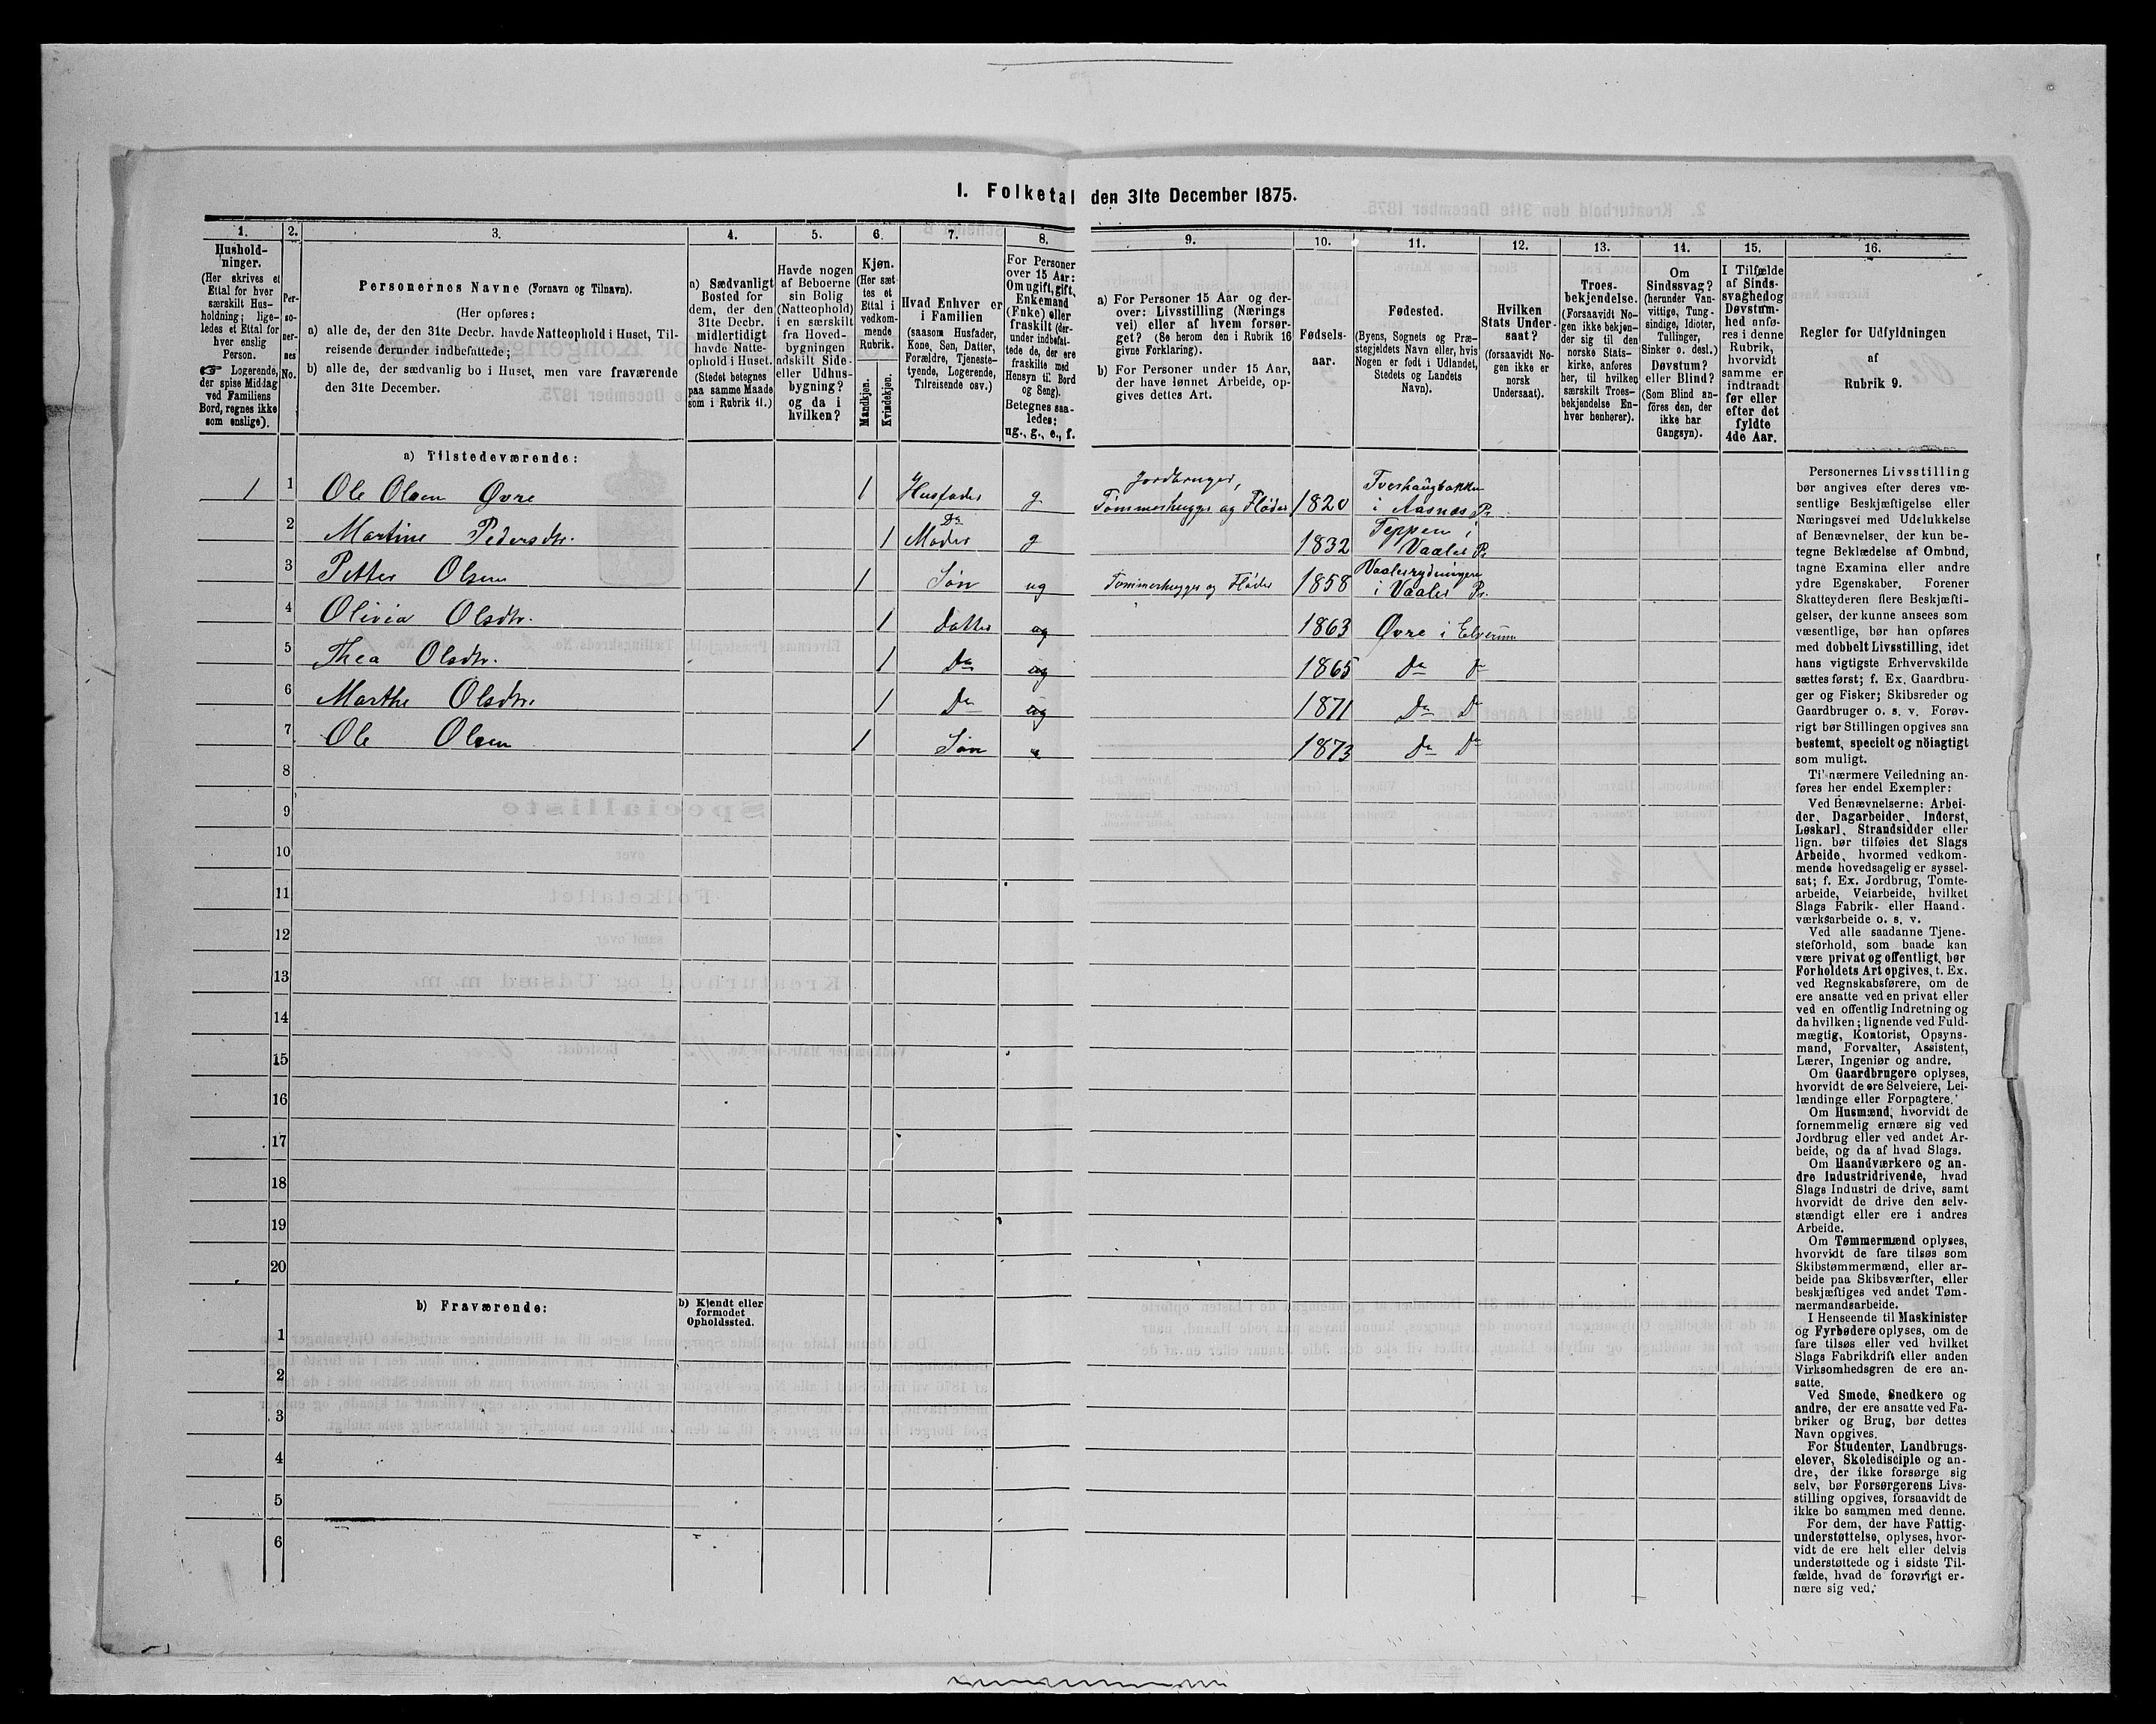 I. Folketal den 31te December 1875.
1.
Hushold-
ninger.
(Her skrives et
Ettal for hver
særskilt Hus-
holdning; lige-
ledes et Ettal for
hver enslig
Person.
☞ Logerende,
der spise Middag
ved Familiens
Bord, regnes ikke
som enslige).
2.
Per-
so-
ner-
nes
No.
3.
Personernes Navne (Fornavn og Tilnavn).
(Her opføres:
a) alle de, der den 31te Decbr. havde Natteophold i Huset, Til-
reisende derunder indbefattede;
b) alle de, der sædvanlig bo i Huset, men vare fraværende
den 31te December.
4.
a) Sædvanligt
Bosted for
dem, der den
31te Decbr.
midlertidigt
havde Natte-
ophold i Huset.
(Stedet betegnes
paa samme Maade
som i Rubrik 11.)
5.
Havde nogen
af Beboerne
sin Bolig
(Natteophold)
i en særskilt
fra Hoved-
bygningen
adskilt Side-
eller Udhus-
bygning?
og da i
hvilken?
6.
Kjøn.
(Her sæt-
tes et
Ettal i
vedkom-
mende
Rubrik.
Mandkjøn.
Kvindekjøn.
7.
Hvad Enhver er
i Familien
(saasom Husfader,
Kone, Søn, Datter,
Forældre, Tjeneste-
tyende, Logerende,
Tilreisende osv.)
8.
For Personer
over 15 Aar:
Om ugift, gift,
Enkemand
(Enke) eller
fraskilt (der-
under indbefat-
tede de, der ere
fraskilte med
Hensyn til Bord
og Seng).
Betegnes saa-
ledes:
ug., g., e., f.
9.
a) For Personer 15 Aar og der-
over: Livsstilling (Nærings
vei) eller af hvem forsør-
get? (Se herom den i Rubrik 16
givne Forklaring).
b) For Personer under 15 Aar,
der have lønnet Arbeide, op-
gives dettes Art.
10.
Fødsels-
aar.
11.
Fødested.
(Byens, Sognets og Præ-
stegjeldets Navn eller, hvis
Nogen er født i Udlandet,
Stedets og Landets
Navn).
12.
Hvilken
Stats Under-
saat?
(forsaavidt No-
gen ikke er
norsk
Undersaat).
13.
Troes-
bekjendelse.
(Forsaavidt No-
gen ikke bekjen-
der sig til den
norske Stats-
kirke, anføres
her, til hvilken
særskilt Troes-
bekjendelse En-
hver henhører).
14.
Om
Sindssvag?
(herunder Van-
vittige, Tung-
sindige, Idioter,
Tullinger,
Sinker o. desl.)
Døvstum?
eller Blind?
(Som Blind an-
føres den, der
ikke har
Gangsyn).
15.
I Tilfælde
af Sinds-
svaghedog
Døvstum-
hed anfø-
res i denne
Rubrik,
hvorvidt
samme er
indtraadt
før eller
efter det
fyldte
4de Aar.
16.
Regler for Udfyldningen
af
Rubrik 9.
a) Tilstedeværende:
1 1 Ole Olsen Øvre 1 Husfader g Jordbruger, Tømmerhugger og Fløder 1820 Tverhaugbakken i Aasnes Pr.
2 Martine Pedersdtr. 1 Do Moder g 1832 Teppen i Vaaler Pr
3 Petter Olsen 1 Søn ug Tømmerhugger og Fløder 1858 Vaalerrydningen i Vaaler Pr.
4 Olivia Olsdtr. 1 Datter ug 1863 Øvre i Elverum
5 Thea Olsdtr. 1 Do ug 1865 Do Do
6 Marthe Olsdtr. 1 Do ug 1871 Do Do
7 Ole Olsen 1 Søn 1873 Do Do
8
9
10
11
12
13
14
15
16
17
18
19
20
b) Fraværende:
b) Kjendt eller
formodet
Opholdssted.
1
2
3
4
5
6
Personernes Livsstilling
bør angives efter deres væ-
sentlige Beskjæftigelse eller
Næringsvei med Udelukkelse
af Benævnelser, der kun be-
tegne Beklædelse af Ombud,
tagne Examina eller andre
ydre Egenskaber. Forener
Skatteyderen flere Beskjæfti-
gelser, der kunne ansees som
væsentlige, bør han opføres
med dobbelt Livsstilling, idet
hans vigtigste Erhvervskilde
sættes først; f. Ex. Gaardbru-
ger og Fisker; Skibsreder og
Gaardbruger o. s. v. Forøv-
rigt bør Stillingen opgives saa
bestemt, specielt og nöiagtigt
som muligt.
Til nærmere Veiledning an-
føres her endel Exempler:
Ved Benævnelserne: Arbei-
der, Dagarbeider, Inderst,
Løskarl, Strandsidder eller
lign. bør tilføies det Slags
Arbeide, hvormed vedkom-
mende hovedsagelig er syssel-
sat; f. Ex. Jordbrug, Tomte-
arbeide, Veiarbeide, hvilket
Slags Fabrik- eller Haand-
værksarbeide o. s. v.
Ved alle saadanne Tjene-
steforhold, som baade kan
være privat og offentligt, bør
Forholdets Art opgives, t. Ex.
ved Regnskabsførere, om de
ere ansatte ved en privat eller
ved en offentlig Indretning og
da hvilken; lignende ved Fuld-
mægtig, Kontorist, Opsyns-
mand, Forvalter, Assistent,
Lærer, Ingeniør og andre.
Om Gaardbrugere oplyses,
hvorvidt de ere Selveiere, Lei-
lændinge eller Forpagtere.
Om Husmænd, hvorvidt de
fornemmelig ernære sig ved
Jordbrug eller ved andet Ar-
beide, og da af hvad Slags.
Om Haandværkere og an-
dre Industridrivende, hvad
Slags Industri de drive, samt
hvorvidt de drive den selv-
stændigt eller ere i andres
Arbeide.
Om Tømmermænd oplyses,
hvorvidt de fare tilsøs som
Skibstømmermænd, eller ar-
beide paa Skibsværfter, eller
beskjæftiges ved andet Tøm-
mermandsarbeide.
I Henseende til Maskinister
og Fyrbødere oplyses, om de
fare tilsøs eller ved hvilket
Slags Fabrikdrift eller anden
Virksomhedsgren de ere an-
satte.
Ved Smede, Snedkere og
andre, der ere ansatte ved Fa-
briker og Brug, bør dettes
Navn opgives.
For Studenter, Landbrugs-
elever, Skoledisciple og an-
dre, der ikke forsørge sig
selv, bør Forsørgerens Livs-
stilling opgives, forsaavidt de
ikke bo sammen med denne.
For dem, der have Fattig-
understøttelse, oplyses, hvor-
vidt de ere helt eller delvis
understøttede og i sidste Til-
fælde, hvad de forøvrigt er-
nære sig ved.